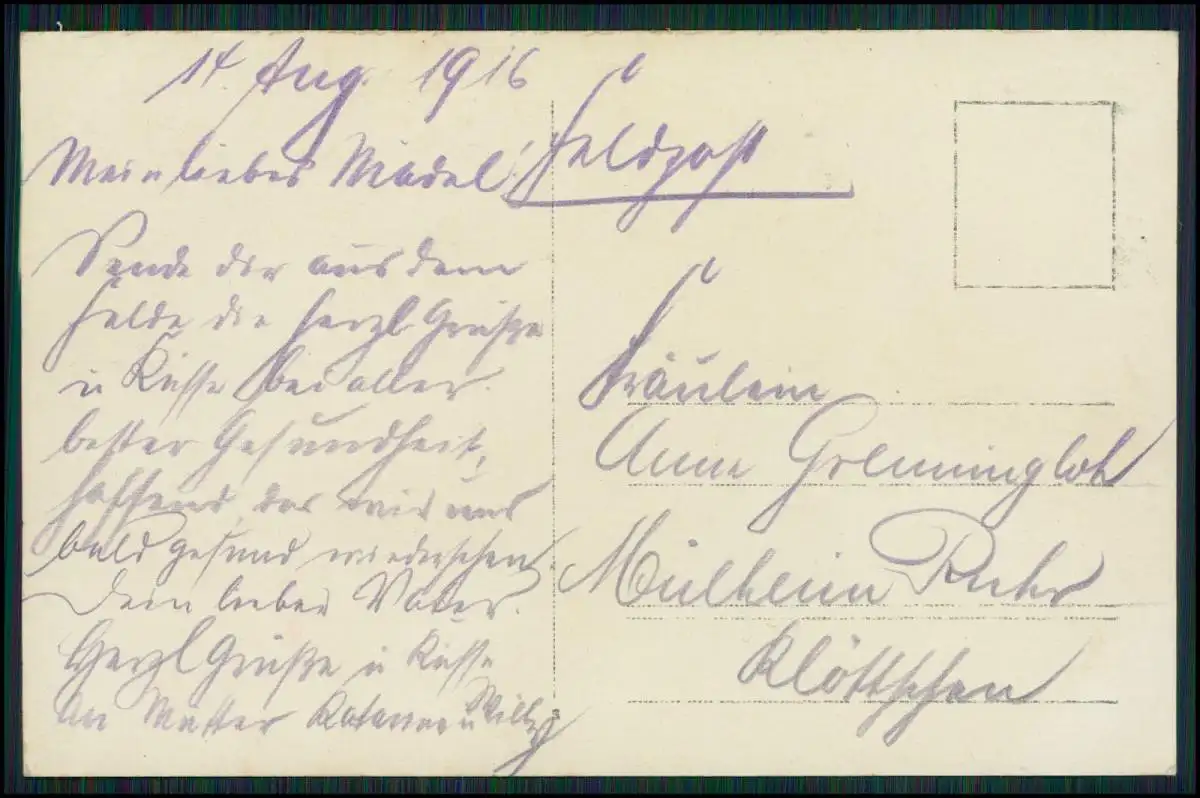 14. Aug. 1916
Mein liebes Mädel!
Sende dir aus dem
Felde die herzl Grüße
u Küsse bei aller
bester Gesundheit,
hoffend, das wir uns
bald gesund wiedersehen
Dein lieber Vater.
Herzl Grüße u Küsse
An Mutter u Willy
Feldpost
Fräulein
Anna
Mülheim Ruhr
Klöttschen